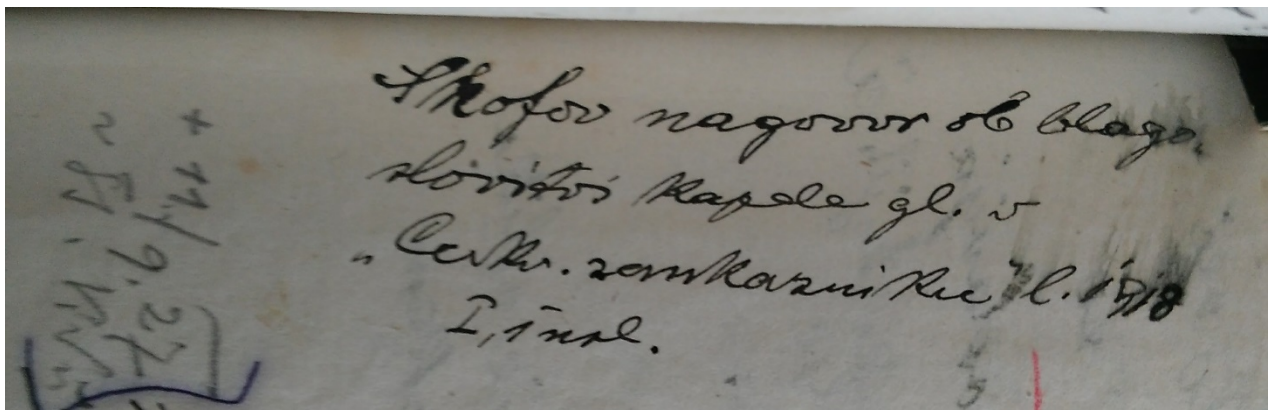 Škofov nagovor ob blago-
slovitvi kapele gl. v
„Cerkv. zaukazniku" l. 1918
I,
+ 11/9. 27